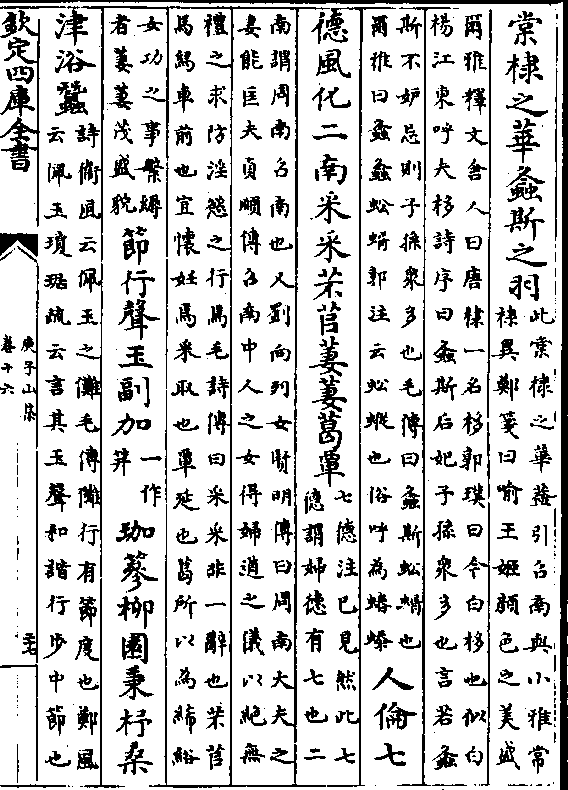 棠棣之華螽斯之羽
此棠棣之華蓋引召南與小雅常
棣異鄭箋曰喻王姬顏色之美盛
爾雅釋文舍人曰唐棣一名栘郭璞曰今白栘也似白
楊江東呼夫栘詩序曰螽斯后妃子孫衆多也言若螽
斯不妒忌則子孫衆多也毛傳曰螽斯蚣蝑也
爾雅曰螽蚣蝑郭注云蚣也俗呼為
人倫七
德風化二南采采芣苢萋萋葛覃
七德注已見然此七
德謂婦德有七也二
南謂周南召南也又劉向列女賢明傳曰周南大夫之
妻能匡夫貞順傳召南申人之女得婦道之儀以絶無
禮之求防淫慾之行焉毛詩傳曰采采非一辭也芣苢
馬舄車前也宜懷妊焉采取也覃延也葛所以為絺綌
女功之事繁縟
者萋萋茂盛貌
節行聲玉副加
一作
笄
珈蔘柳園秉杼桑
津浴蠶
詩衛風云佩玉之儺毛傳儺行有節度也鄭風
云佩玉瓊琚疏云言其玉聲和諧行步中節也
欽定四庫全書
庾子山集
卷十六